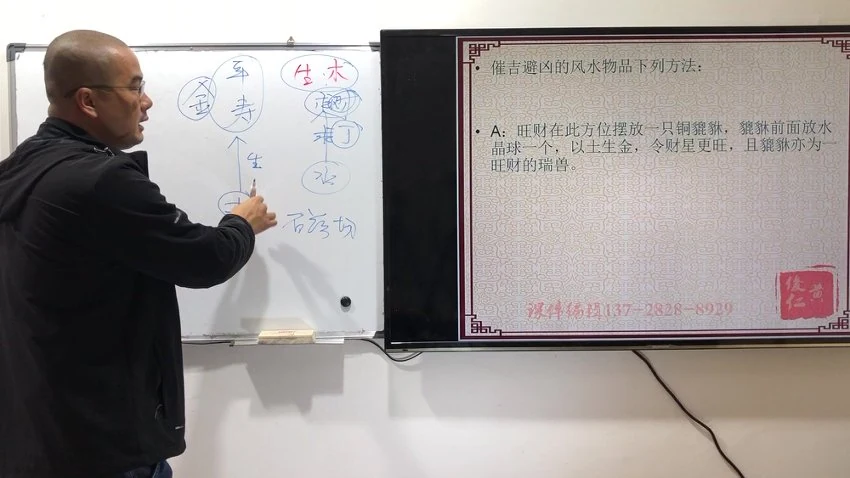 车
金 寿
生
土
生·木
丁
水
催吉避凶的风水物品下列方法：
A：旺财在此方位摆放一只铜貔貅，貔貅前面放水
晶球一个，以土生金，令财星更旺，且貔貅亦为
旺财的瑞兽。
俊仁 黄
课件编辑137-2828-8929